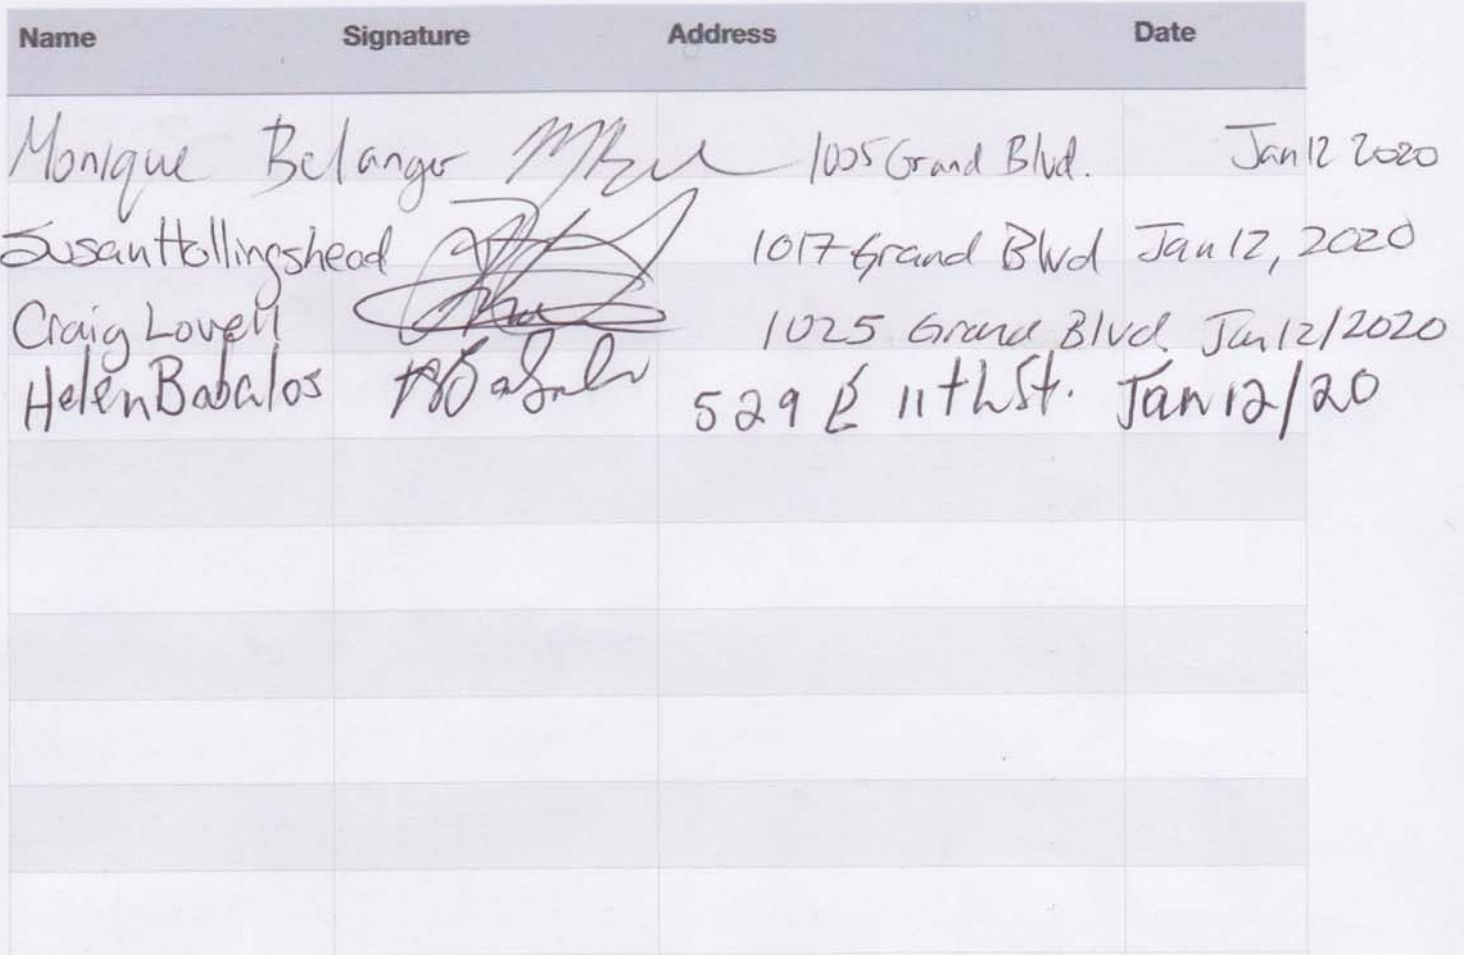 Name Signature Address Date
Monique Belanger 1005 Grand Blvd. Jan 12 2020
Susan Hollingshead 1017 Grand Blvd Jan 12, 2020
Craig Lovell 1025 Grand Blvd. Jan 12/2020
Helen Babalos 529 E 11th St. Jan 12/20